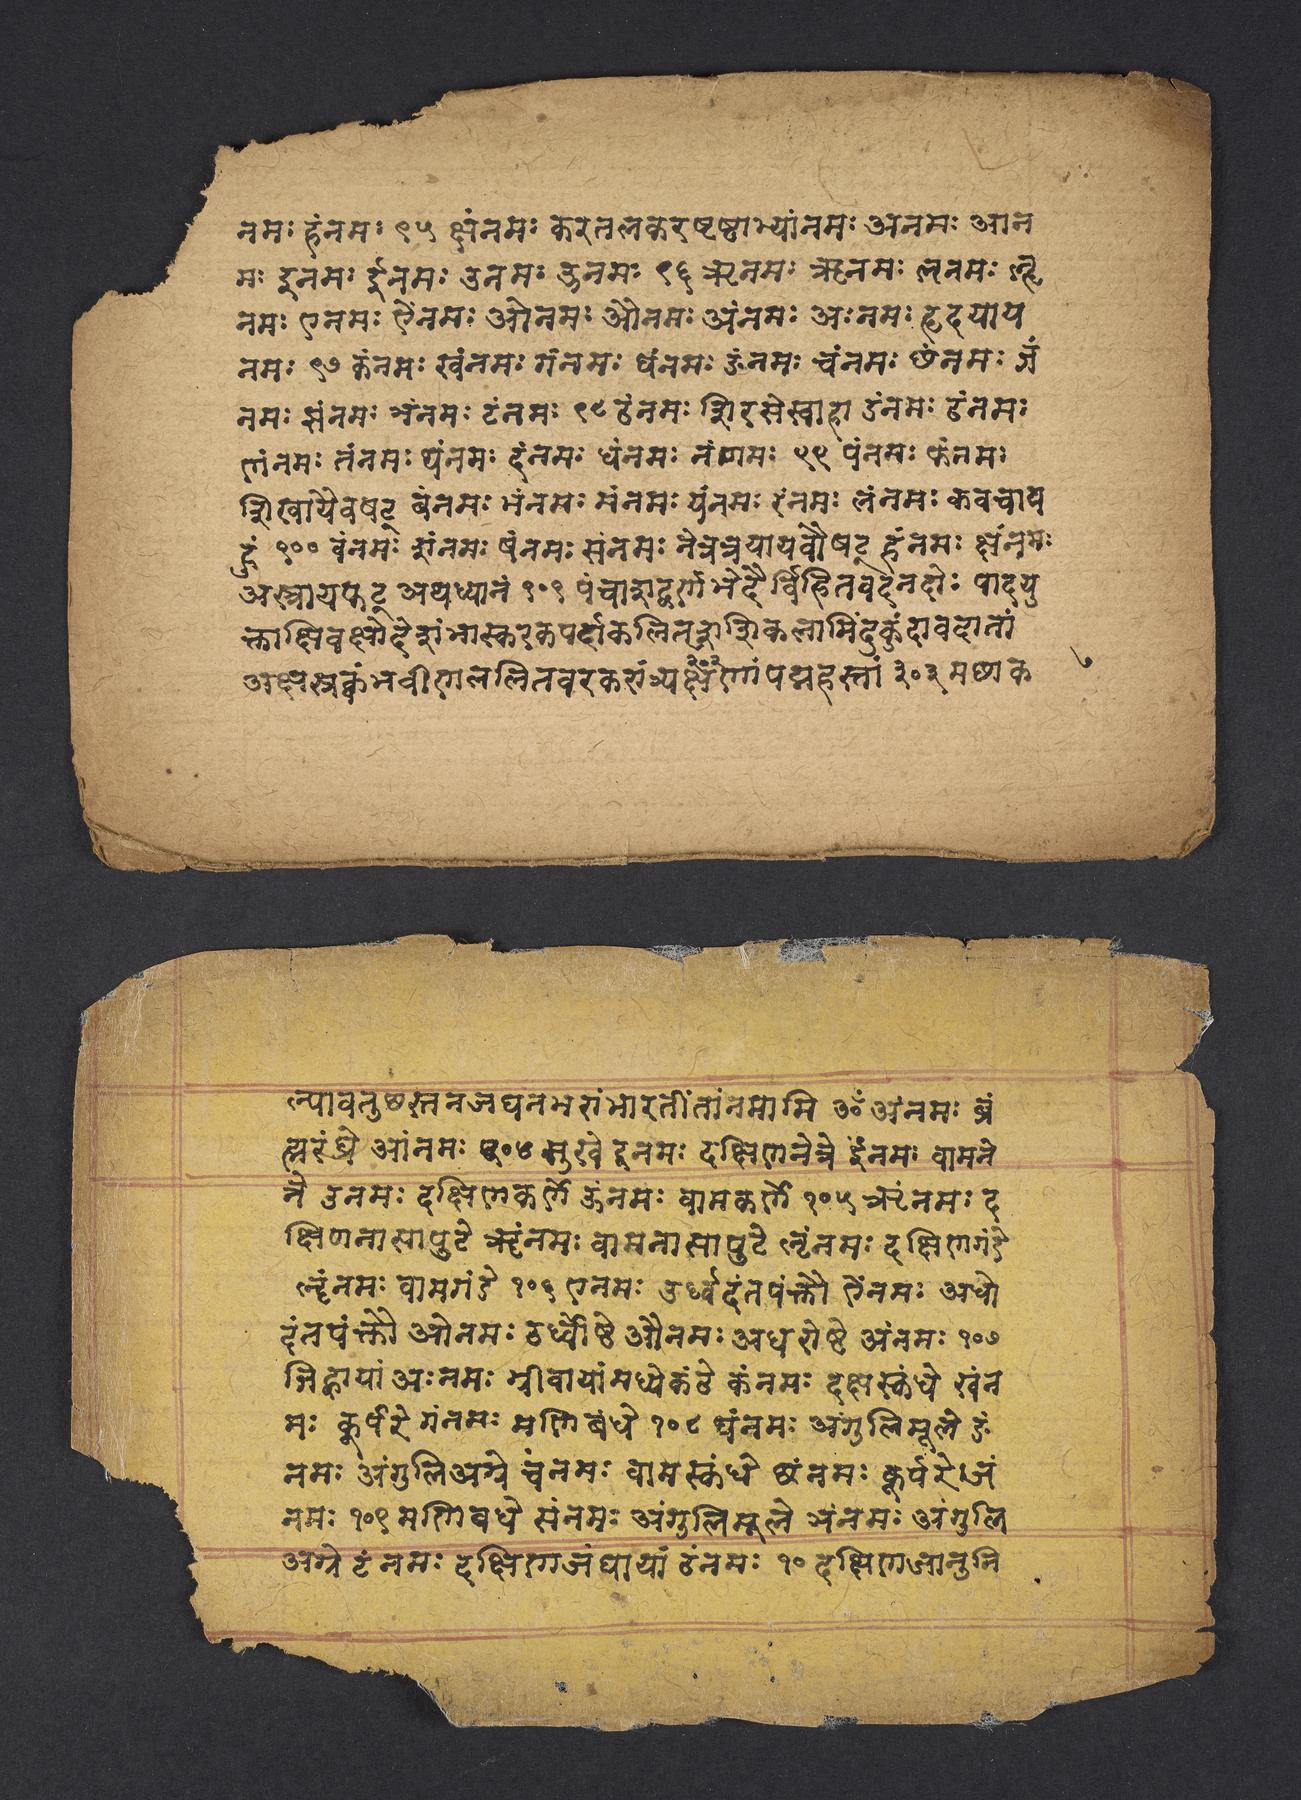 नमः हंनमः ९५ क्षंनमः करतलकरपृष्ठाभ्यांनमः अनमः आन
मः इनमः ईनमः उनमः ऊनमः ९६ ऋनमः ॠनमः ऌनमः ॡ
नमः एनमः ऐंनमः ओनमः औनमः अंनमः अःनमः हृदयाय
नमः ९७ कंनमः खंनमः गंनमः घंनमः ङंनमः चंनमः छंनमः जं
नमः झंनमः ञंनमः टंनमः ९८ ठंनमः शिरसेस्वाहा डंनमः ढंनमः
णंनमः तंनमः थंनमः दंनमः धंनमः नंणमः ९९ पंनमः फंनमः
शिखायैवषट् बंनमः भंनमः मंनमः यंनमः रंनमः लंनमः कवचाय
हुं १०० वंनमः शंनमः षंनमः संनमः नेत्रत्रयायवौषट् हंनमः क्षंनमः
अस्त्रायफट् अथध्यानं १०१ पंचाशद्वर्णभेदैर्विहितवदनदोः पादयु
क्ताक्षिवक्षोदेशंभास्करकपर्दाकलितशशिकलामिंदुकुंदावदातां
अक्षस्रक्कंभवीणाललितवरकरांत्र्यक्षंणांपद्महस्तां ३०३ मछाक
७
ल्पावतुछस्तनजघनभरांभारतींतांनमामि ॐ अंनमः ब्रं
ह्मरंध्रे आंनमः १०४ मुखे इनमः दक्षिणनेत्रे ईंनमः वामने
त्रे उनमः दक्षिणकर्णे ऊंनमः वामकर्णे १०५ ऋंनमः द
क्षिणनासापुटे ॠंनमः वामनासापुटे ऌंनमः दक्षिणगंडे
ॡंनमः वामगंडे १०६ एनमः उर्ध्वदंतपंक्तौ ऐंनमः अधो
दंतपंक्तौ ओनमः ऊर्ध्वोष्ठे औनमः अधरोष्टे अंनमः १०७
जिह्वायां अःनमः ग्रीवायांमध्येकंठे कंनमः दक्षस्कंधे खंन
मः कूर्परे गंनमः मणिबंधे १०८ घंनमः अंगुलिमूले ङं
नमः अंगुलिअग्रे चंनमः वामस्कंधे छंनमः कूर्परे जं
नमः १०९ मणिबधे संनमः अंगुलिमूले ञंनमः अंगुलि
अग्रे टंनमः दक्षिणजंघायां ठंनमः १० दक्षिणजानुनि